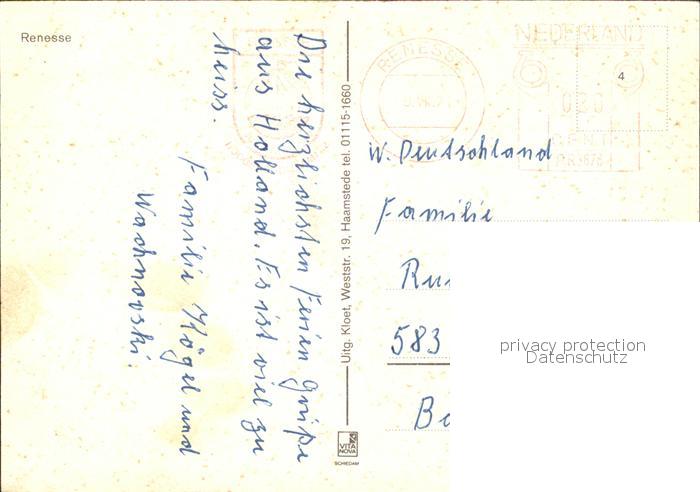 Renesse
Die herzlichsten Ferien Grüße
aus Holland. Es ist viel zu
heiss.
Familie Kögel und
Wachnovski.
Uitg. Kloet, Weststr. 19, Haamstede tel. 01115-1660
VITA
NOVA
SCHIEDAM
RENESSE
NEDERLAND
4
CENT
W. Deutschland
Familie
583
privacy protection
Datenschutz